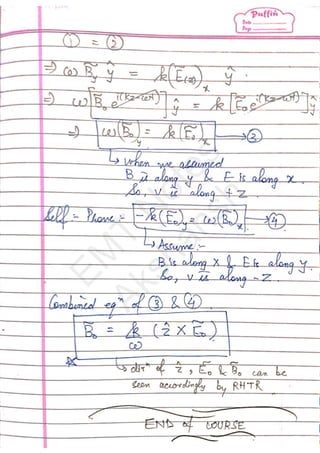 Puffin
Date
Page
① = ②
⇒ ω B̃y ŷ = k (Ẽ(z))x ŷ
⇒ ω [B̃₀ e^i(kz-ωt)] ŷ = k [Ẽ₀ e^i(kz-ωt)] ŷ
⇒ ω(B̃₀)y = k(Ẽ₀)x → ③
↳ when we assumed
B is along y & E is along x.
So, v is along +z.
Self:- Prove:- -k(Ẽ₀)y = ω(B̃₀)x → ④
↳ Assume:-
B is along x & E is along y.
So, v is along -z.
Combined eqⁿ of ③ & ④.
B̃₀ = k/ω (ẑ × Ẽ₀)
↳ dirⁿ of ẑ, Ẽ₀ & B̃₀ can be
seen accordingly by RHTR
END of COURSE